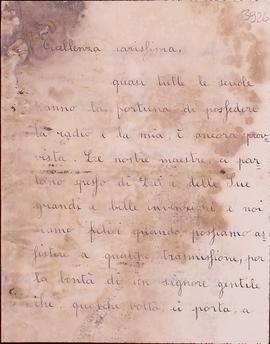 3926
Eccellenza carissima,
quasi tutte le scuole
hanno la fortuna di possedere
la radio e la mia, è ancora prov-
vista. Le nostre maestre, ci par-
lano spesso di Lei e delle Sue
grandi e belle invenzioni e noi
siamo felici quando possiamo as-
sistere a qualche trasmissione, per
la bontà di un signore gentile
che, qualche volta, ci porta, a